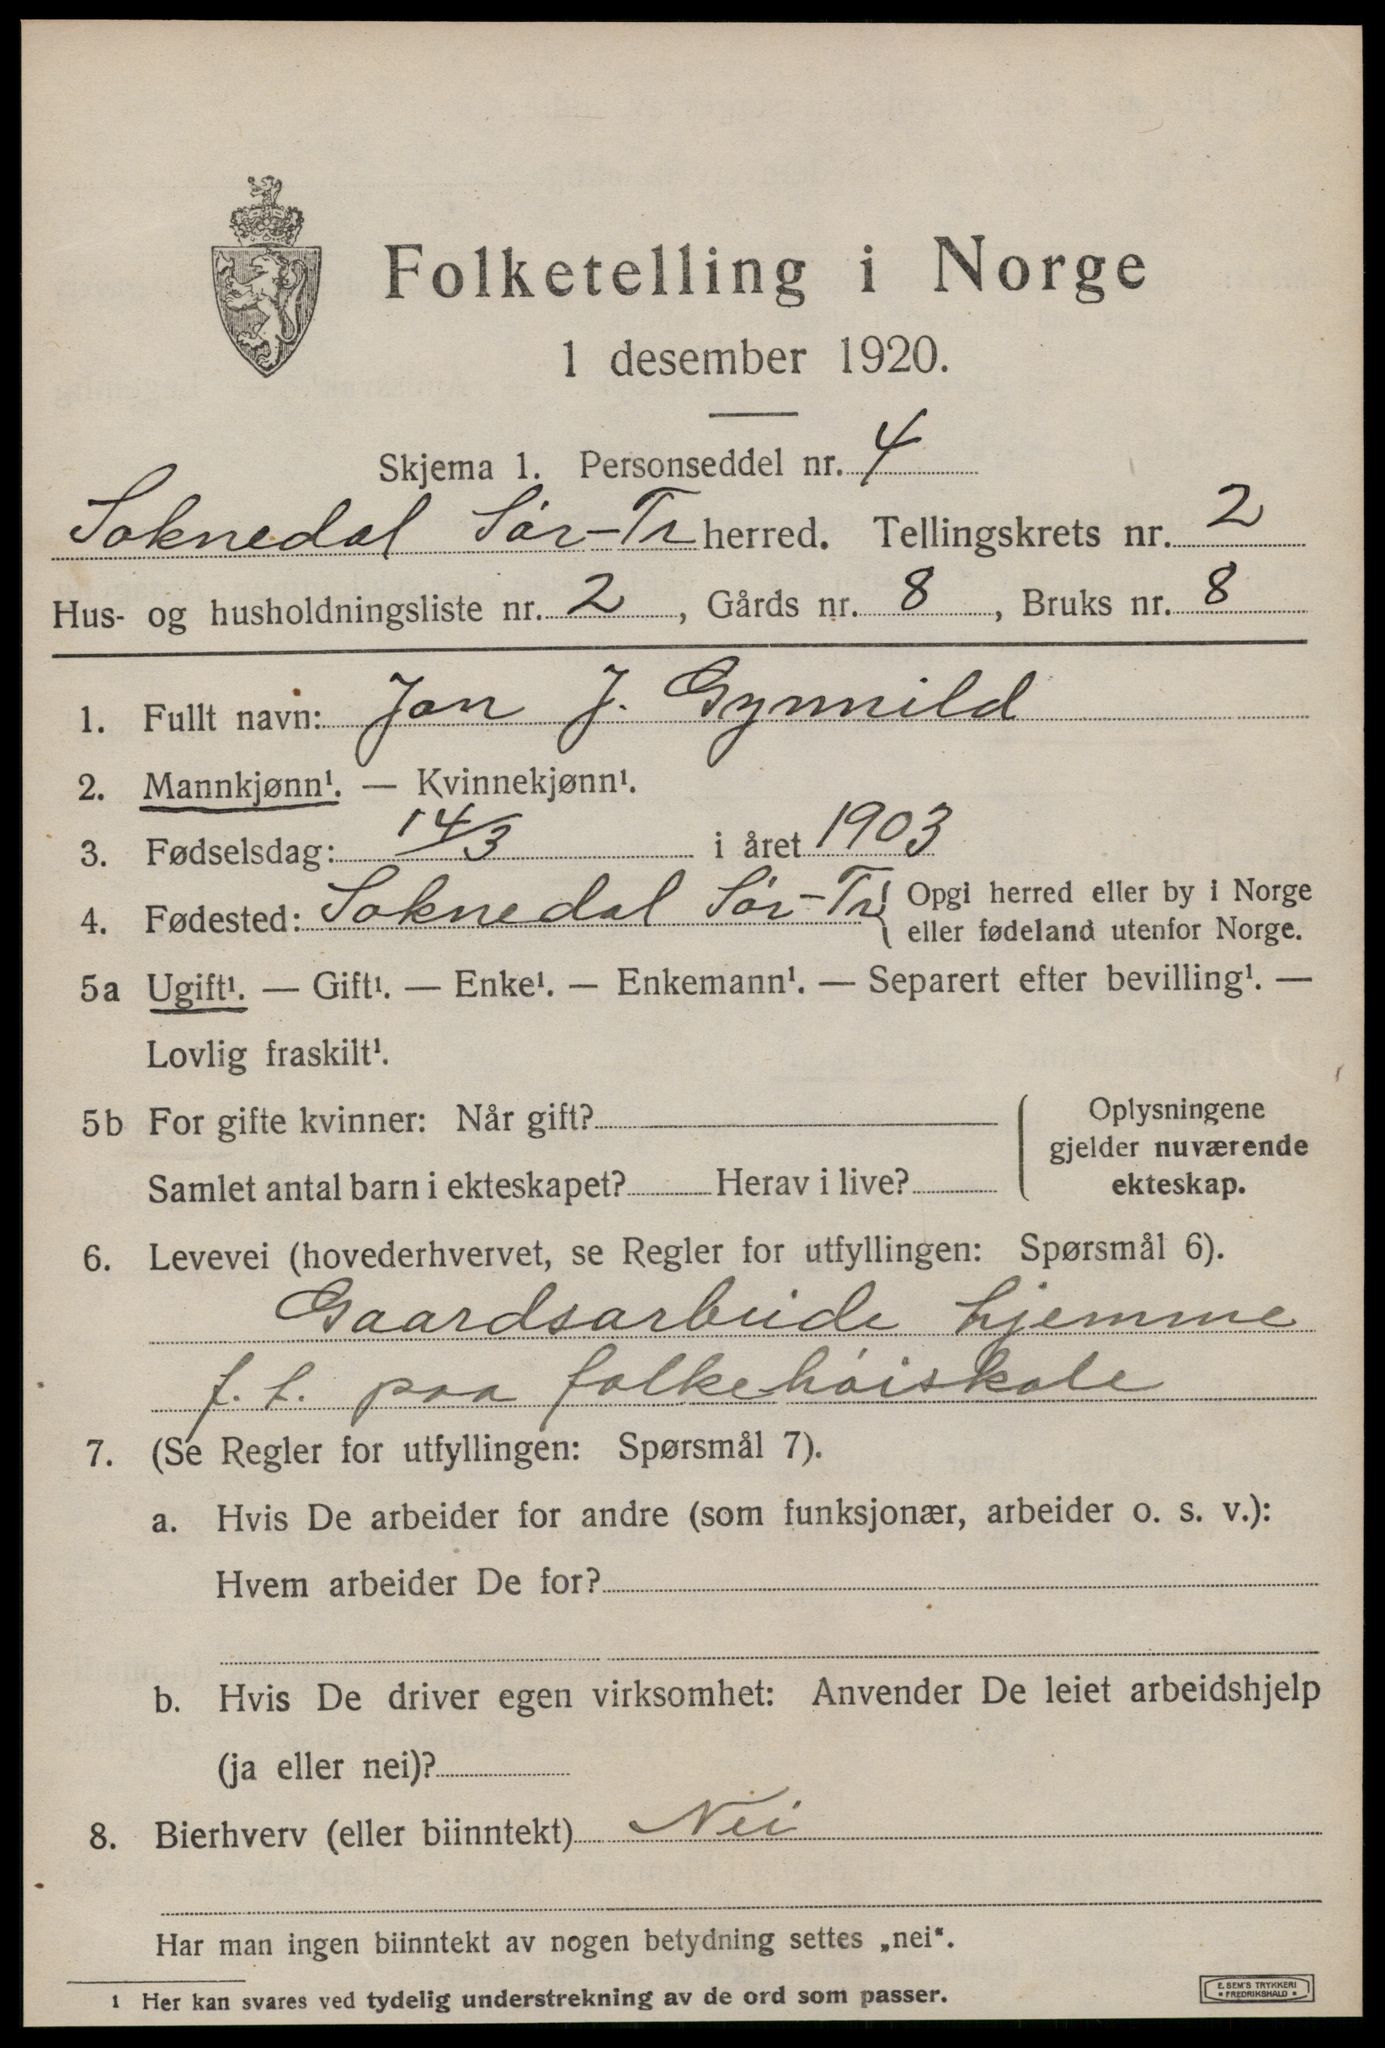 Folketelling i Norge
1 desember 1920.
Skjema 1. Personseddel nr. 4
Soknedal Sör-Tr herred. Tellingskrets nr. 2
Hus- og husholdningsliste nr. 2, Gårds nr. 8, Bruks nr. 8
1. Fullt navn: Jon J. Gynnild
2. Mannkjønn¹. — Kvinnekjønn¹.
3. Fødselsdag: 14/3 i året 1903
4. Fødested: Soknedal Sör-Tr { Opgi herred eller by i Norge
eller fødeland utenfor Norge.
5a Ugift¹. — Gift¹. — Enke¹. — Enkemann¹. — Separert efter bevilling¹. —
Lovlig fraskilt¹.
5b For gifte kvinner: Når gift?
Samlet antal barn i ekteskapet? Herav i live?
Oplysningene
gjelder nuværende
ekteskap.
6. Levevei (hovederhvervet, se Regler for utfyllingen: Spørsmål 6).
Gaardsarbeide hjemme
f. t. paa folkehöiskole
7. (Se Regler for utfyllingen: Spørsmål 7).
a. Hvis De arbeider for andre (som funksjonær, arbeider o. s. v.):
Hvem arbeider De for?
b. Hvis De driver egen virksomhet: Anvender De leiet arbeidshjelp
(ja eller nei)?
8. Bierhverv (eller biinntekt) Nei
Har man ingen biinntekt av nogen betydning settes „nei“.
1 Her kan svares ved tydelig understrekning av de ord som passer.
E. SEM'S TRYKKERI
• FREDRIKSHALD •